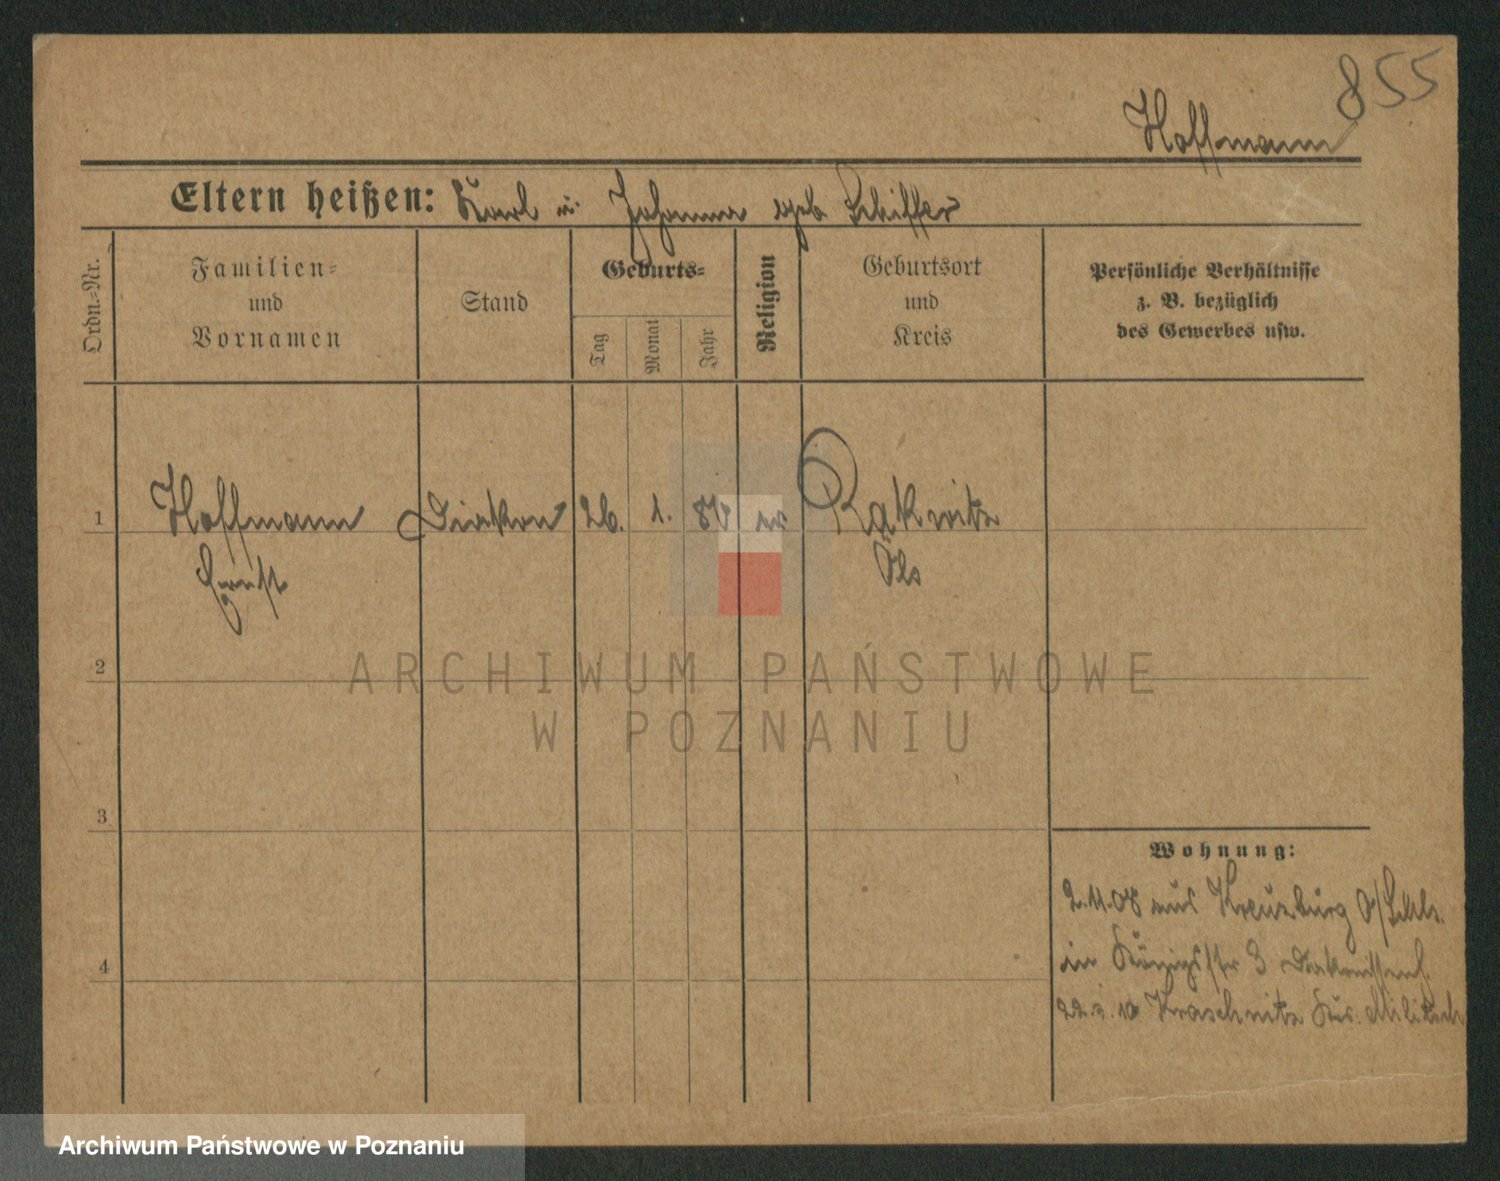 855
Hoffmann
Eltern heißen: Karl u. Johanna geb Schiffer
Ordn.=Nr.
Familien=
und
Vornamen
Stand
Geburts=
Tag
Monat
Jahr
Religion
Geburtsort
und
Kreis
Persönliche Verhältnisse
z. B. bezüglich
des Gewerbes usw.
1 Hoffmann Diakon 26. 1. Rakwitz
Ernst Öls
2
3
4
Wohnung:
2.11.08 aus Kreuzburg O/Schls.
in Königstr 3
Kraschnitz Krs. Militsch
ARCHIWUM PAŃSTWOWE
W POZNANIU
Archiwum Państwowe w Poznaniu